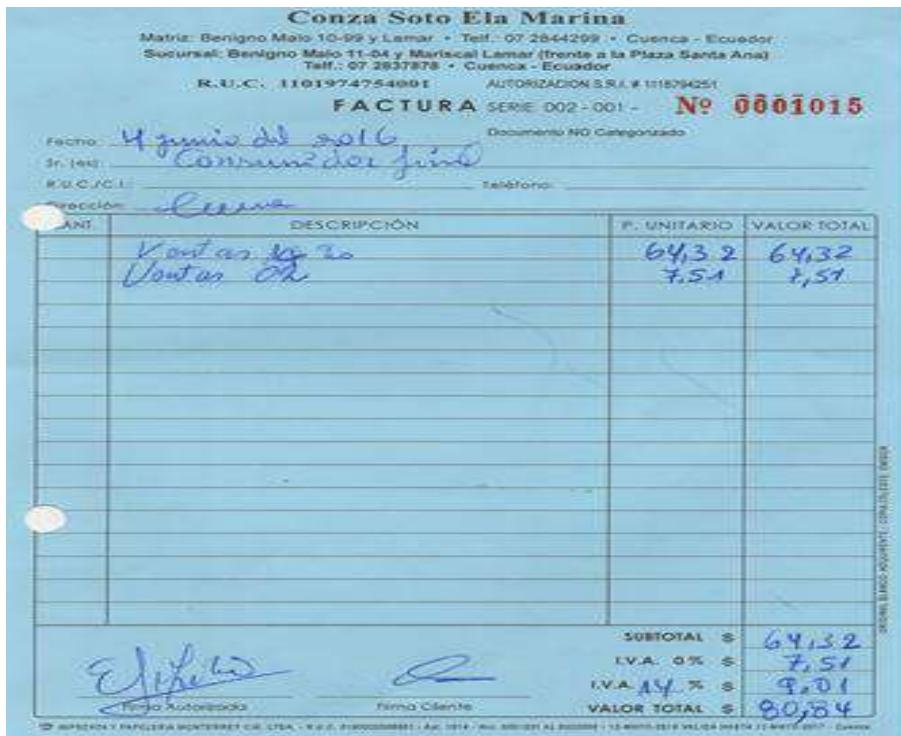 Conza Soto Ela Marina
Matriz: Benigno Malo 10-99 y Lamar • Telf. 07 2844299 • Cuenca - Ecuador
Sucursal: Benigno Malo 11-04 y Mariscal Lamar (frente a la Plaza Santa Ana)
Telf.: 07 2837878 • Cuenca - Ecuador
R.U.C. 1101974754001 AUTORIZACION S.R.I. # 1118794251
FACTURA SERIE 002 - 001 - Nº 0001015
Documento NO Categorizado
Fecha: 4 junio del 2016
Sr. (es): Consumidor final
R.U.C./C.I.: Teléfono:
Dirección: Cuenca
CANT. DESCRIPCIÓN P. UNITARIO VALOR TOTAL
Ventas 64,32 64,32
Ventas 0% 7.51 7,51
SUBTOTAL $ 64,32
I.V.A. 0% $ 7,51
I.V.A. 14 % $ 9,01
Firma Autorizada Firma Cliente VALOR TOTAL $ 80,84